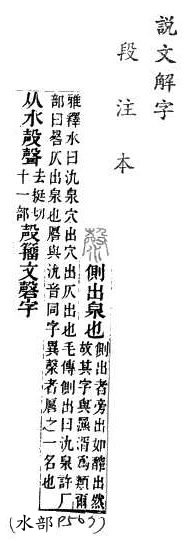 説文解字
段注本
漀 側出泉也
側出者旁出如釃出然
故其字與厬湑爲類爾
雅釋水曰氿泉穴出穴出仄出也毛傳側出曰氿泉許厂
部曰厬仄出泉也厬與氿音同字異漀者厬之一名也
从水殸聲 去挺切 十一部 殸籒文磬字
(水部P563)